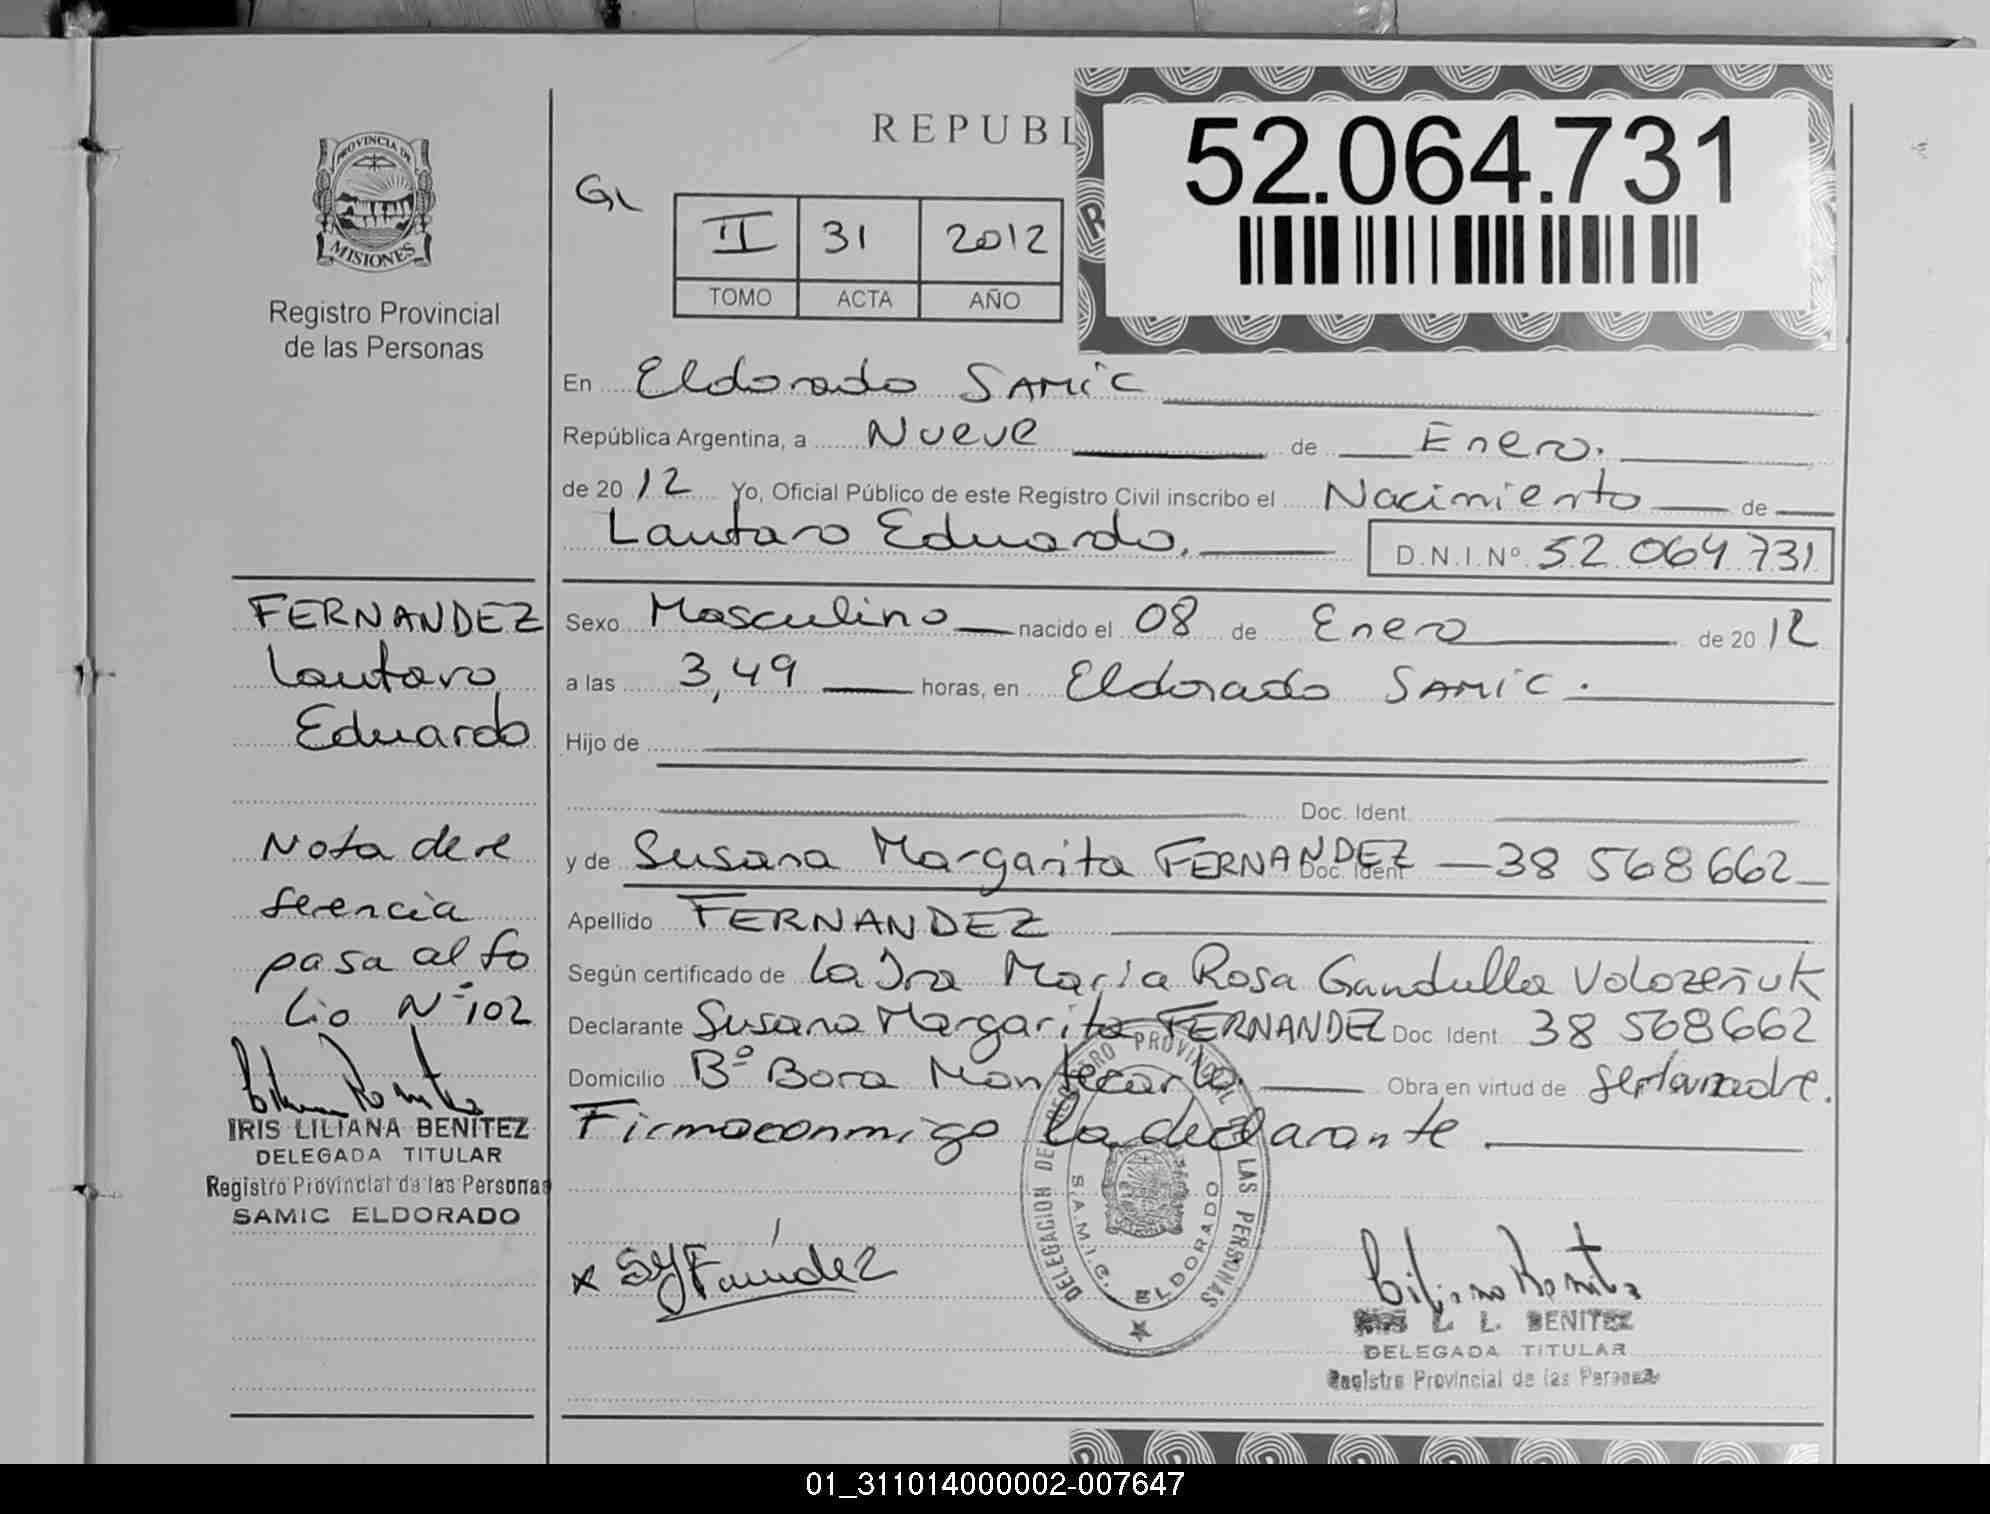 REPUBL
52.064.731
PROVINCIA DE
MISIONES
Registro Provincial
de las Personas
GL
II 31 2012
TOMO ACTA AÑO
En Eldorado SAMIC
República Argentina, a Nueve de Enero.
de 2012 Yo, Oficial Público de este Registro Civil inscribo el Nacimiento de
Lautaro Eduardo. D.N.I.Nº 52 064 731
FERNANDEZ
Lautaro
Eduardo
Nota de re
ferencia
pasa al fo
lio Nº 102
IRIS LILIANA BENITEZ
DELEGADA TITULAR
Registro Provincial de las Personas
SAMIC ELDORADO
Sexo Masculino nacido el 08 de Enero de 2012
a las 3,49 horas, en Eldorado SAMIC.
Hijo de
Doc. Ident.
y de Susana Margarita FERNANDEZ Doc. Ident 38 568 662
Apellido FERNANDEZ
Según certificado de la Dra Maria Rosa Gandulla Volozeñuk
Declarante Susana Margarita FERNANDEZ Doc Ident. 38 568662
Domicilio Bº Bora Montecarlo. Obra en virtud de ser la madre.
Firma conmigo la declarante
DELEGACION DE REGISTRO PROVINCIAL DE LAS PERSONAS
S.A.M.I.C. ELDORADO
x SMFernández
L. L. BENITEZ
DELEGADA TITULAR
Registro Provincial de las Personas
01_311014000002-007647